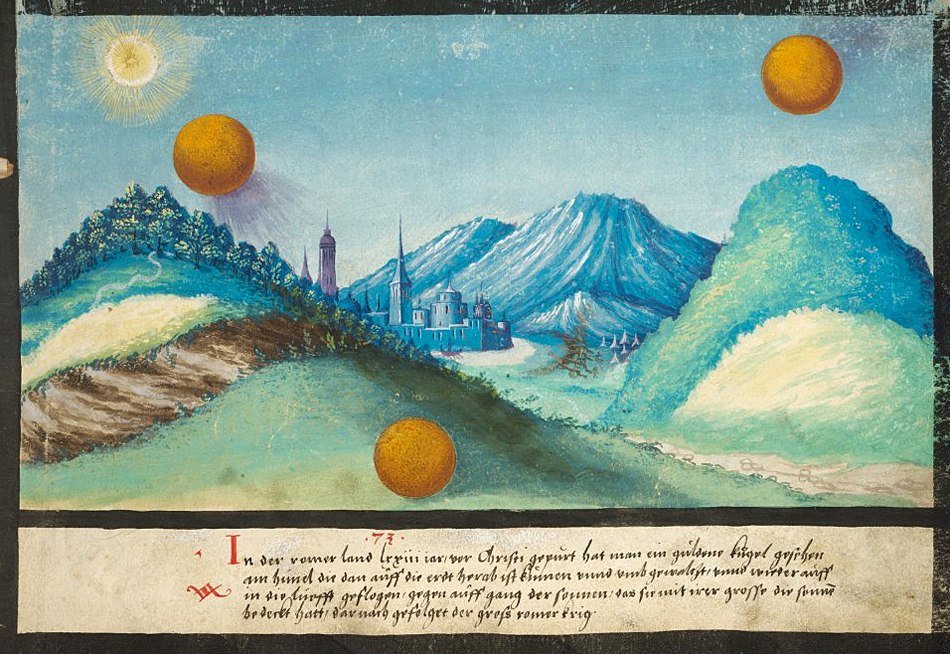 .73.
In der romer land lxxiii iar, vor Christi gepurt hat man ein guldene kugel gesehen
am himel die dan auff die erdt herab ist kumen vnnd vmb gewaltzt, vnnd wieder auff
in die lüefft geflogen, gegen auff gang der sonnen, das sie mit irer grosse die sonne
bedeckt hatt, dar nach gefolget der groß romer krig